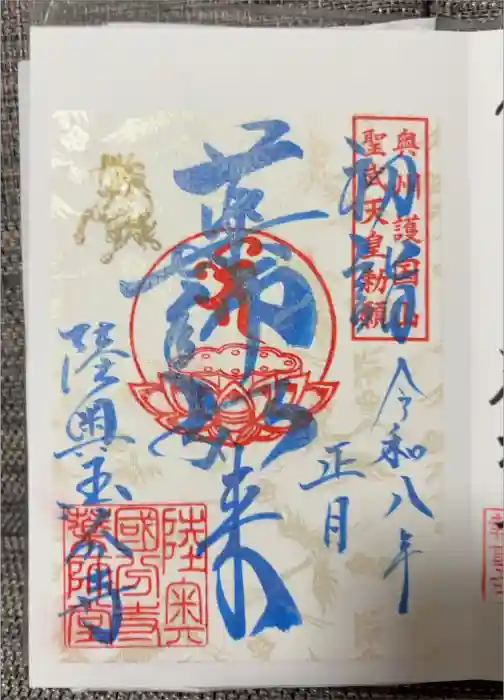 奥州護国山
聖武天皇勅願
初詣
令和八年
正月
薬師如来
陸奥
國分寺
薬師堂
陸奥国分寺